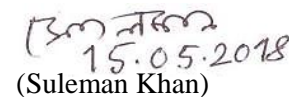 15.05.2018
(Suleman Khan)